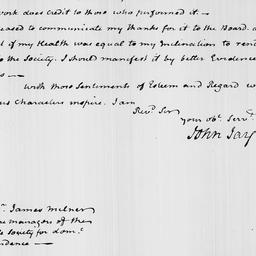 work does credit to those who performed it —
eased to communicate my thanks for it to the Board. a
d if my Health was equal to my Inclination to rend
to the Society. I should manifest it by better Evidence
s —
With those Sentiments of Esteem and Regard w
us Characters inspire. I am
Revd. Sir
Your obt. Servt.
John Jay
r. James Milner
e managers of the
e Society for domc.
vidence —